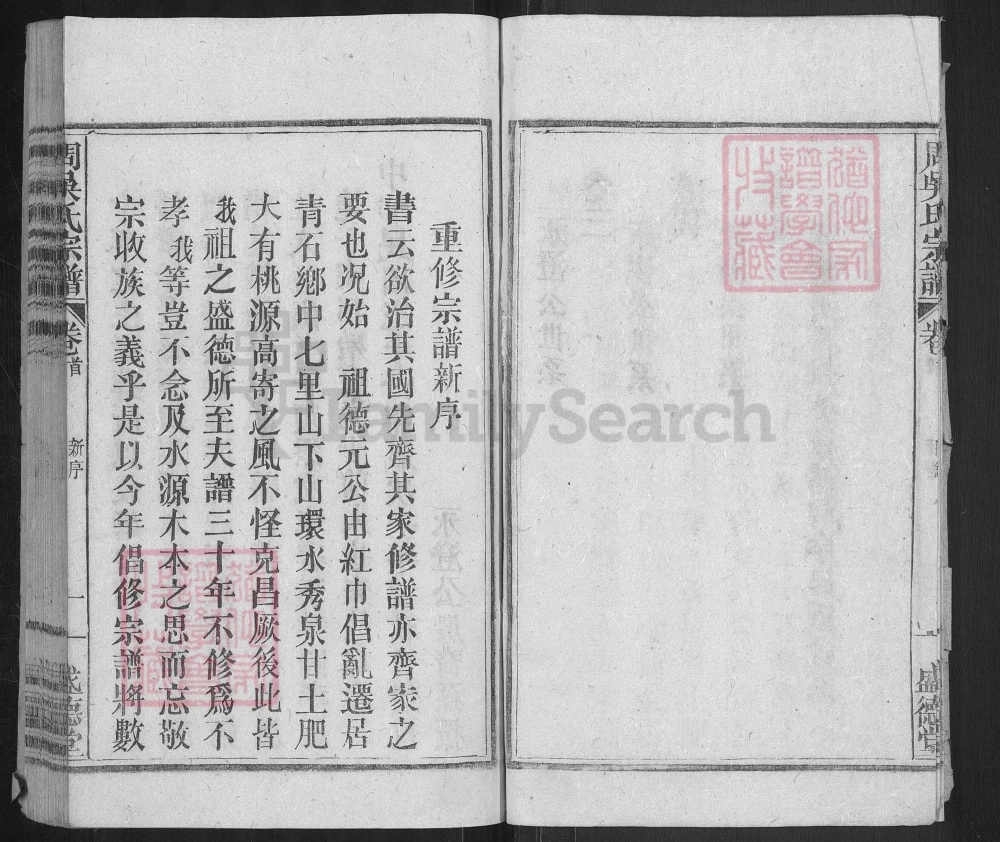 重修宗譜新序
書云欲治其國先齊其家修譜亦齊家之
要也况始　祖德元公由紅巾倡亂遷居
青石鄉中七里山下山環水秀泉甘土肥
大有桃源高寄之風不怪克昌厥後此皆
我祖之盛德所至夫譜三十年不修爲不
孝我等豈不念及水源木本之思而忘敬
宗收族之義乎是以今年倡修宗譜將數
周吳氏宗譜
卷首
新序
一
盛德堂
周吳氏宗譜
卷
一
盛德堂
猶他家
譜學會
收藏
FamilySearch